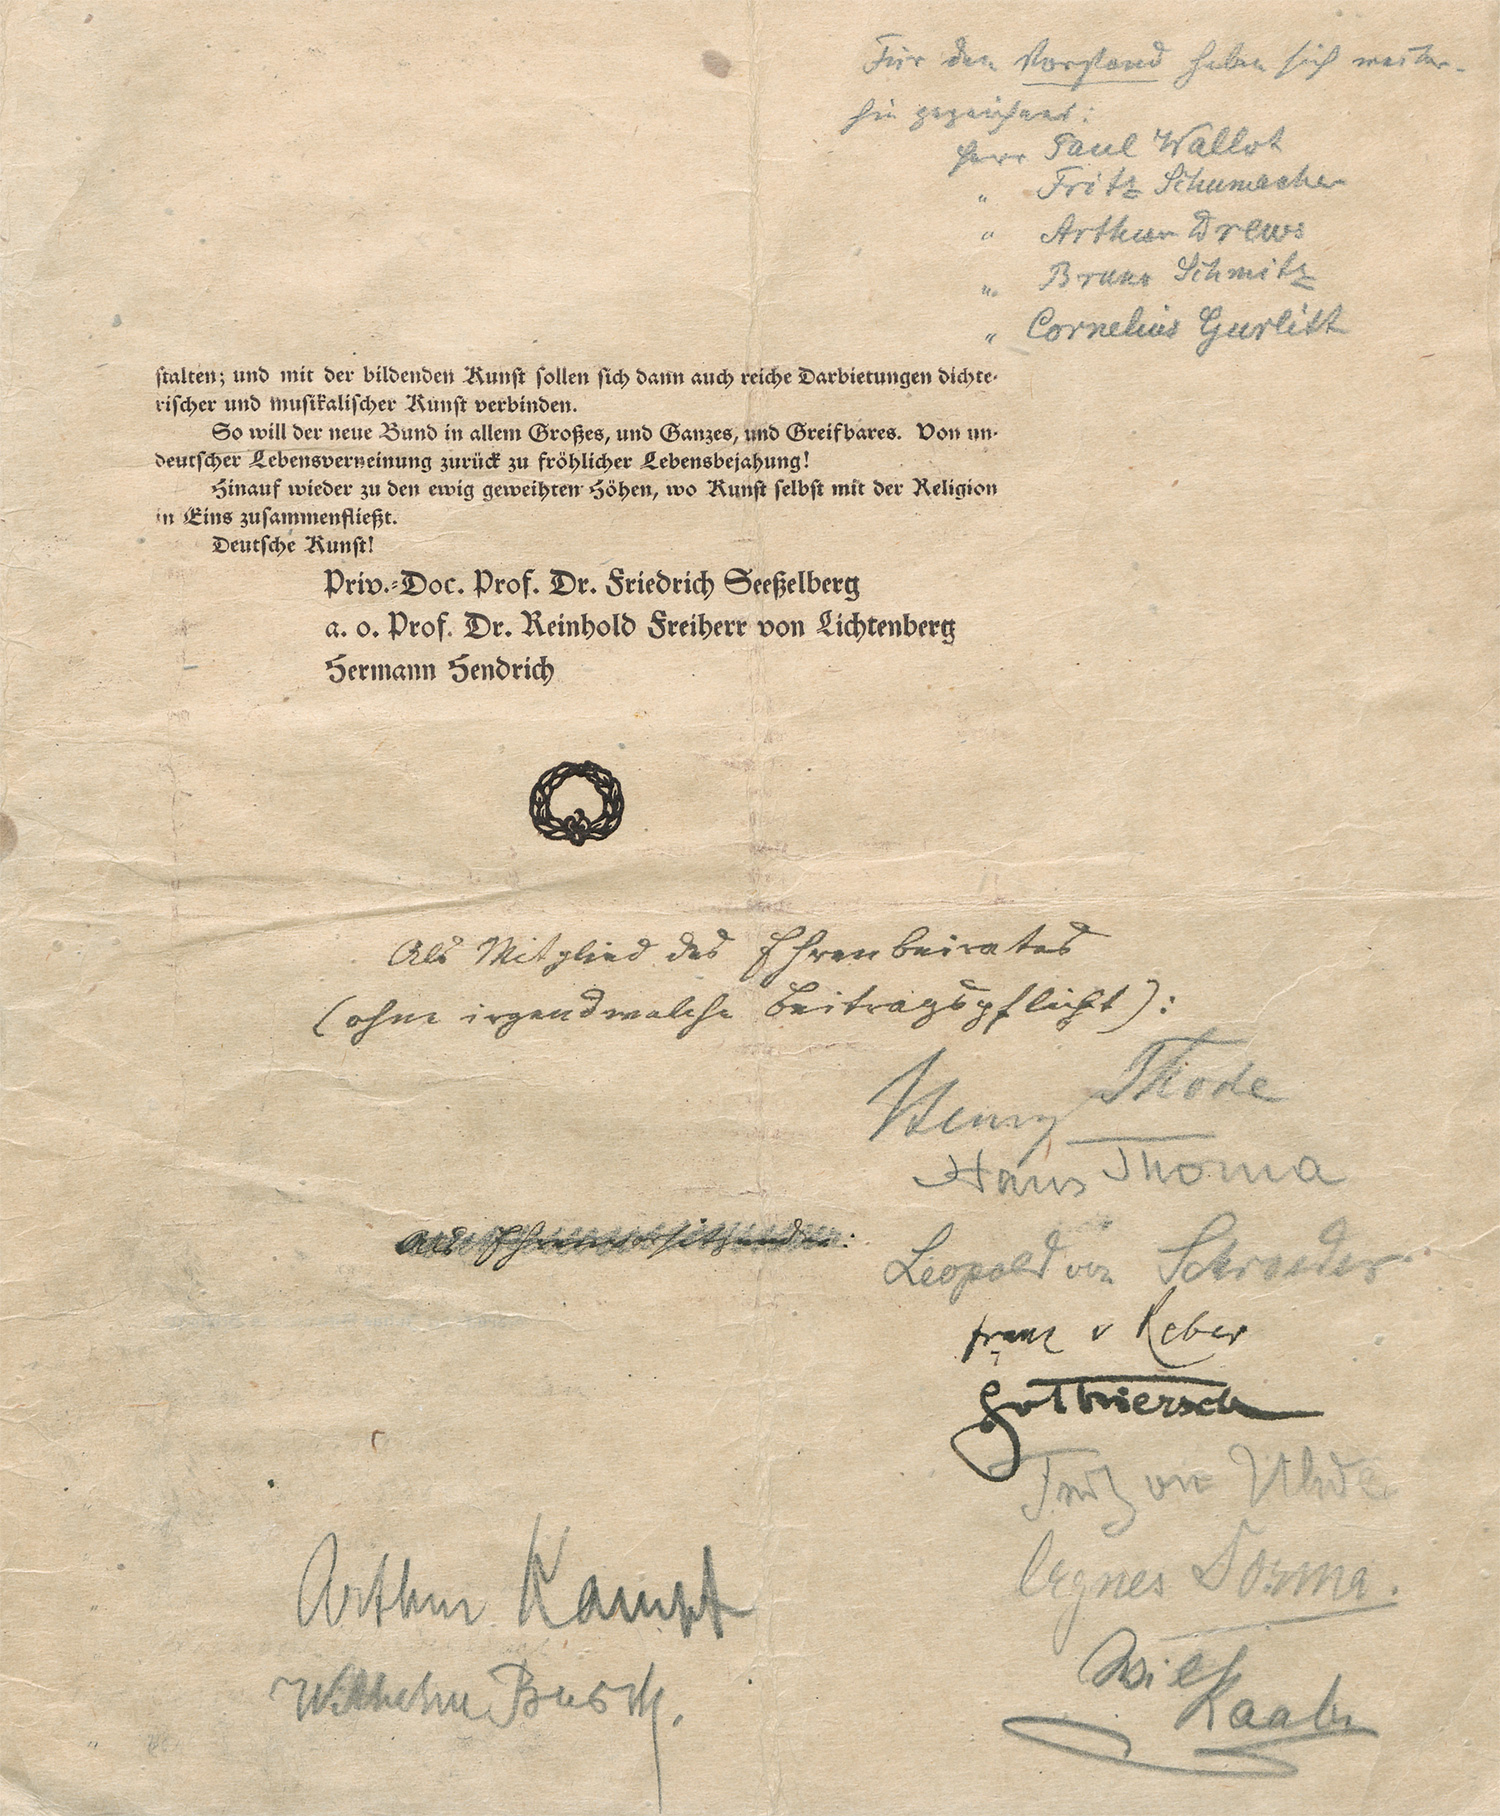 Für den Vorstand haben sich weiter-
hin gezeichnet:
Herr Paul Wallot
" Fritz Schumacher
" Arthur Drews
" Bruno Schmitz
" Cornelius Gurlitt
stalten; und mit der bildenden Kunst sollen sich dann auch reiche Darbietungen dichte-
rischer und musikalischer Kunst verbinden.
So will der neue Bund in allem Großes, und Ganzes, und Greifbares. Von un-
deutscher Lebensverneinung zurück zu fröhlicher Lebensbejahung!
Hinauf wieder zu den ewig geweihten Höhen, wo Kunst selbst mit der Religion
in Eins zusammenfließt.
Deutsche Kunst!
Priv.-Doc. Prof. Dr. Friedrich Seeßelberg
a. o. Prof. Dr. Reinhold Freiherr von Lichtenberg
Hermann Hendrich
Als Mitglied des Ehrenbeirates
(ohne irgendwelche Beitragspflicht):
Henry Thode
Hans Thoma
als Ehrenvorsitzender:
Leopold von Schroeder.
Franz v Reber
GvThiersch
Fritz von Uhde.
Agnes Sorma.
Arthur Kampf
Wilh Raabe
Wilhelm Busch.